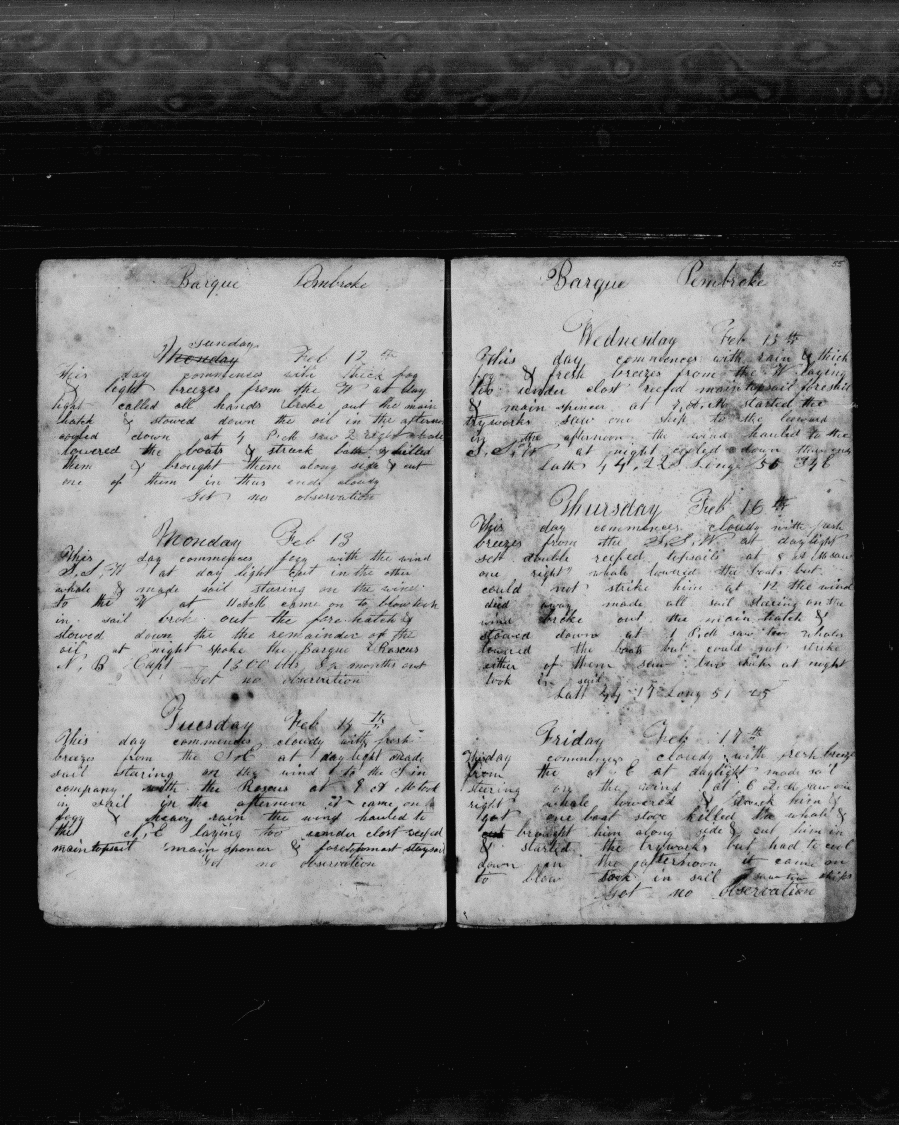 Barque Pembroke
Sunday
Monday Feb 12 th
This day commences with thick fog
& light breezes from the W at day
light called all hands broke out the main
hatch & stowed down the oil in the afternoon
cooled down at 4 P.M saw 2 right whales
lowered the boats & struck both & killed
them & brought them along side & cut
one of them in thus ends cloudy
Got no observation
Monday Feb 13
This day commences fogy with the wind
S.S.W at day light cut in the other
whale & made sail staring on the wind
to the W at 11 came on to blow took
in sail broke out the fore hatch &
stowed down the the remainder of the
oil at night spoke the Barque Roscus
N.B Capt 1300 bbls months out
Got no observation
Tuesday Feb 14 th
This day commences cloudy with fresh
breezes from the at daylight made
sail staring on the wind to the S in
company with the Roscus at 8 A M took
in sail in the afternoon it came on
fogy & heavy rain the wind hauled to
the N.E laying too under clost reefed
maintopsail main spencer & foretopmast staysail
Got no observation
55
Barque Pembroke
Wednesday Feb 15 th
This day commences with rain & thick
fog & fresh breezes from the W laying
too under clost reefed maintopsail foresail
& main spencer at A.M started the
tryworks saw one ship to the leeward
in the afternoon the wind hauled to the
S.S.W at night cooled down thus ends
Latt 44, 22 S Long 50 34 E
Thursday Feb 16 th
This day commences cloudy with fresh
breezes from the S.S.W at daylight
set double reefed topsails at 8 A M saw
one right whale lowered the boats but
could not strike him at 12 the wind
died away made all sail staring on the
wind broke out the main hatch &
stowed down at 1 P.M saw two whales
lowered the boats but could not strike
either of them saw two ships at night
took in sail
Latt 44 17 Long 51 25
Friday Feb 17 th
This day commences cloudy with fresh breeze
from the at E at daylight made sail
steering on the wind at 6 saw one
right whale lowered & struck him &
got one boat stove killed the whale &
brought him along side & cut him in
& started the tryworks but had to cool
down in the afternoon it came on
to blow took in sail saw two ships
Got no observation